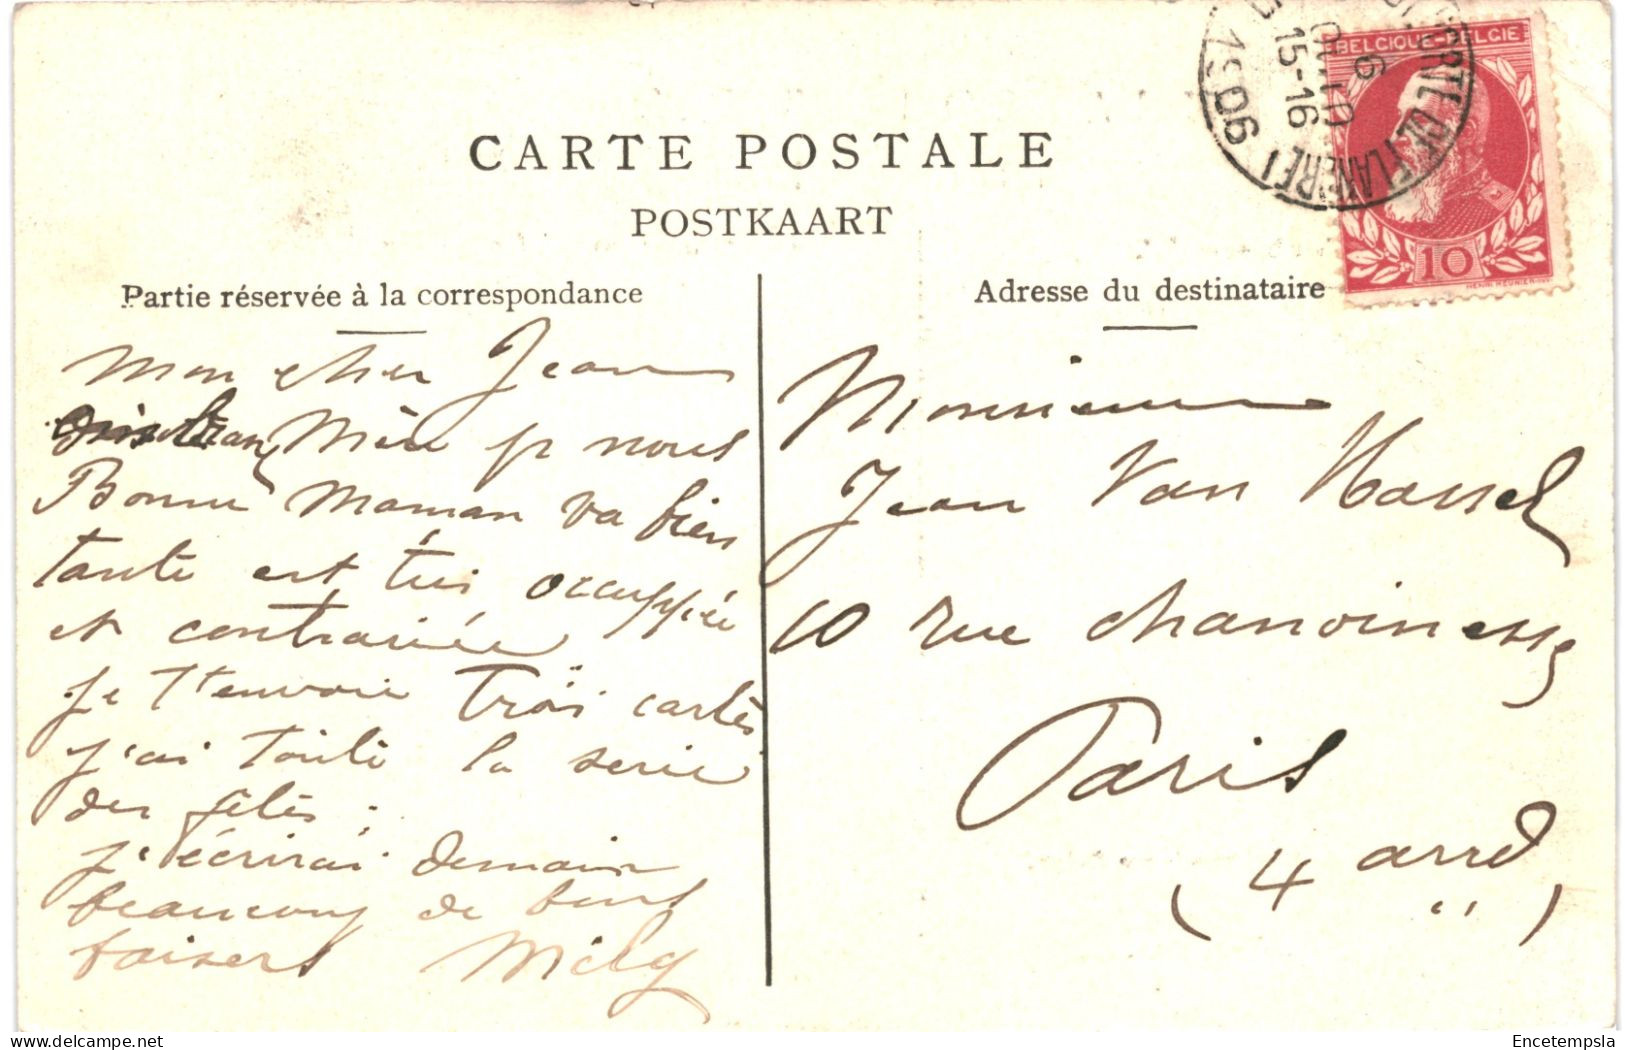 CARTE POSTALE
POSTKAART
Partie réservée à la correspondance
Mon cher Jean
Mère p nous
Bonne Maman va bien
tante est très occuppée
et contrariée
je t'envoie trois cartes
j'ai toute la serie
des fêtes :
j'écrirai demain
beaucoup de bons
baisers Mély
Adresse du destinataire
Monsieur
Jean Van Hassel
10 rue chanoinesse
Paris
(4 arrd)
BELGIQUE-BELGIE
10
15-16
1906
Encetempsla